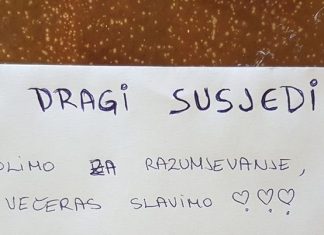 DRAGI SUSJEDI
OLIMO ZA RAZUMJEVANJE,
VEČERAS SLAVIMO ♡♡♡